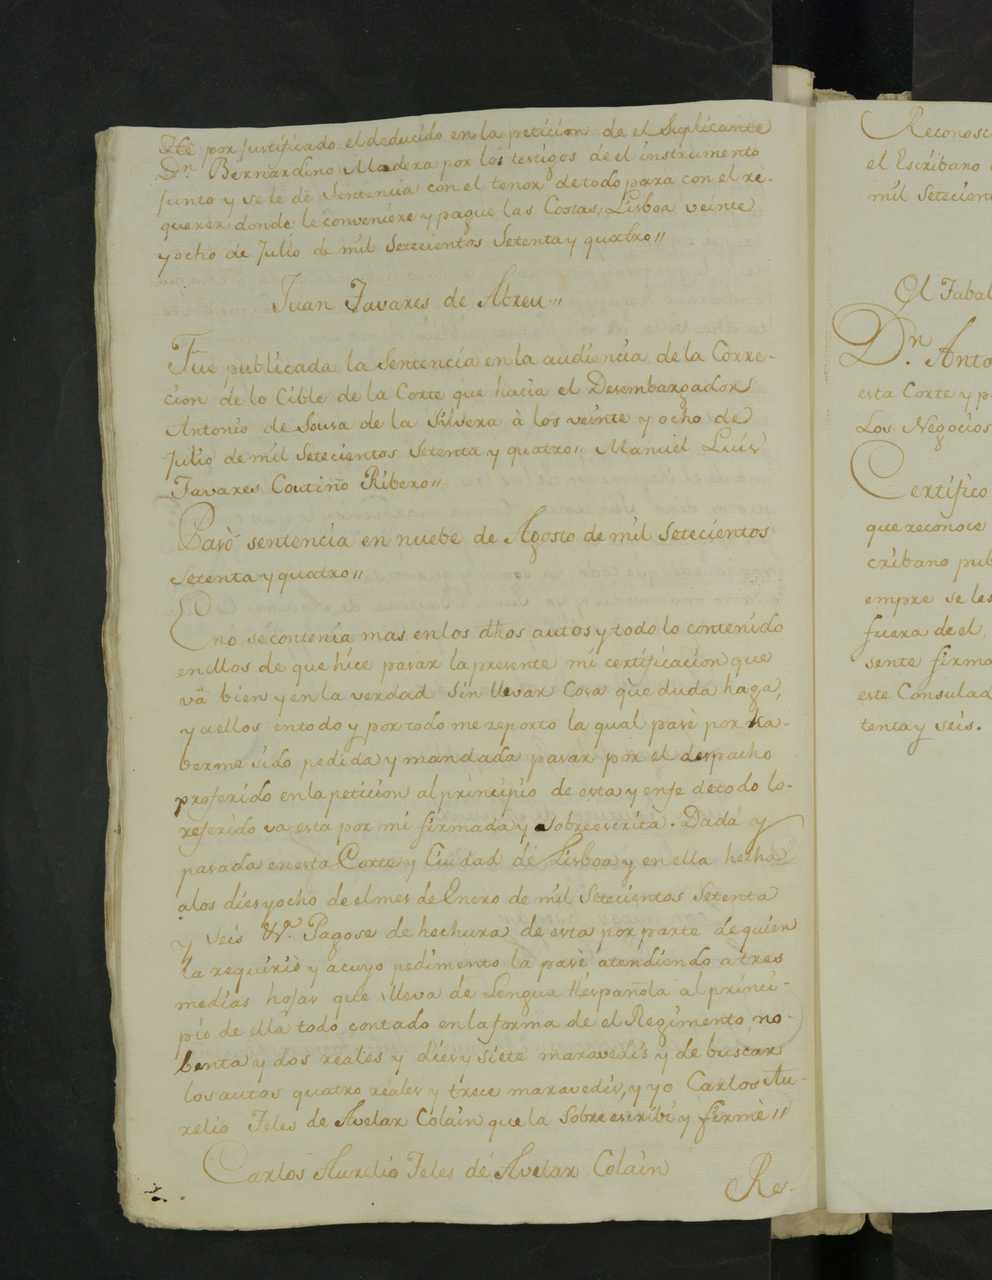 Hé por justificado el deducido en la peticion de el Suplicante
Dn. Bernardino Madera por los testigos de el instrumento
junto y se le dé Sentencia con el tenor de todo para con el re-
querer donde le conveniere y pague las Costas, Lisboa veinte
y ocho de Julio de mil Setecientos Setenta y quatro //
Juan Tavares de Abreu //
Fue publicada la Sentencia en la audiencia de la Corre-
cion de lo Cible de la Corte que hacia el Desembargador
Antonio de Sousa de la Silvera à los veinte y ocho de
Julio de mil Setecientos Setenta y quatro // Manuel Luis
Tavares Coutiño Ribero //
Pasò sentencia en nuebe de Agosto de mil Setecientos
Setenta y quatro //
E no se contenia mas en los dhos autos y todo lo contenido
en ellos de que hice pasar la presente mi certificacion que
và bien y en la verdad sin llevar Cosa que duda haga,
y a ellos in todo y por todo me reporto la qual pasè por ha-
berme sido pedida y mandada pasar por el despacho
proferido en la peticion al principio de esta y en fe de todo lo
referido va esta por mi firmada y sobreescrita. Dada y
pasada en esta Corte y Ciudad de Lisboa y en ella hecha
a los dies y ocho de el mes de Enero de mil Setecientos Setenta
y seis Pagose de hechura de esta por parte de quien
la requiriò y a cuyo pedimento la pasè atendiendo a tres
medias hojas que lleva de Lengua Hespañola al princi-
pio de ella todo contado en la forma de el Regimento no-
benta y dos reales y dies y siete maravedis y de buscar
los autos quatro reales y trece maravedis, y yo Carlos Au-
relio Teles de Avelar Colain que la Sobreescribi y firmè //
Carlos Aurelio Teles de Avelar Colain
Re-
Reconosc
el Escribano
mil Setecient
El Tabal
Dn. Anto
esta Corte y p
Los Negocios
Certifico
que reconoce
cribano pub
empre se les
fuera de el,
sente firma
este Consulad
tenta y seis.